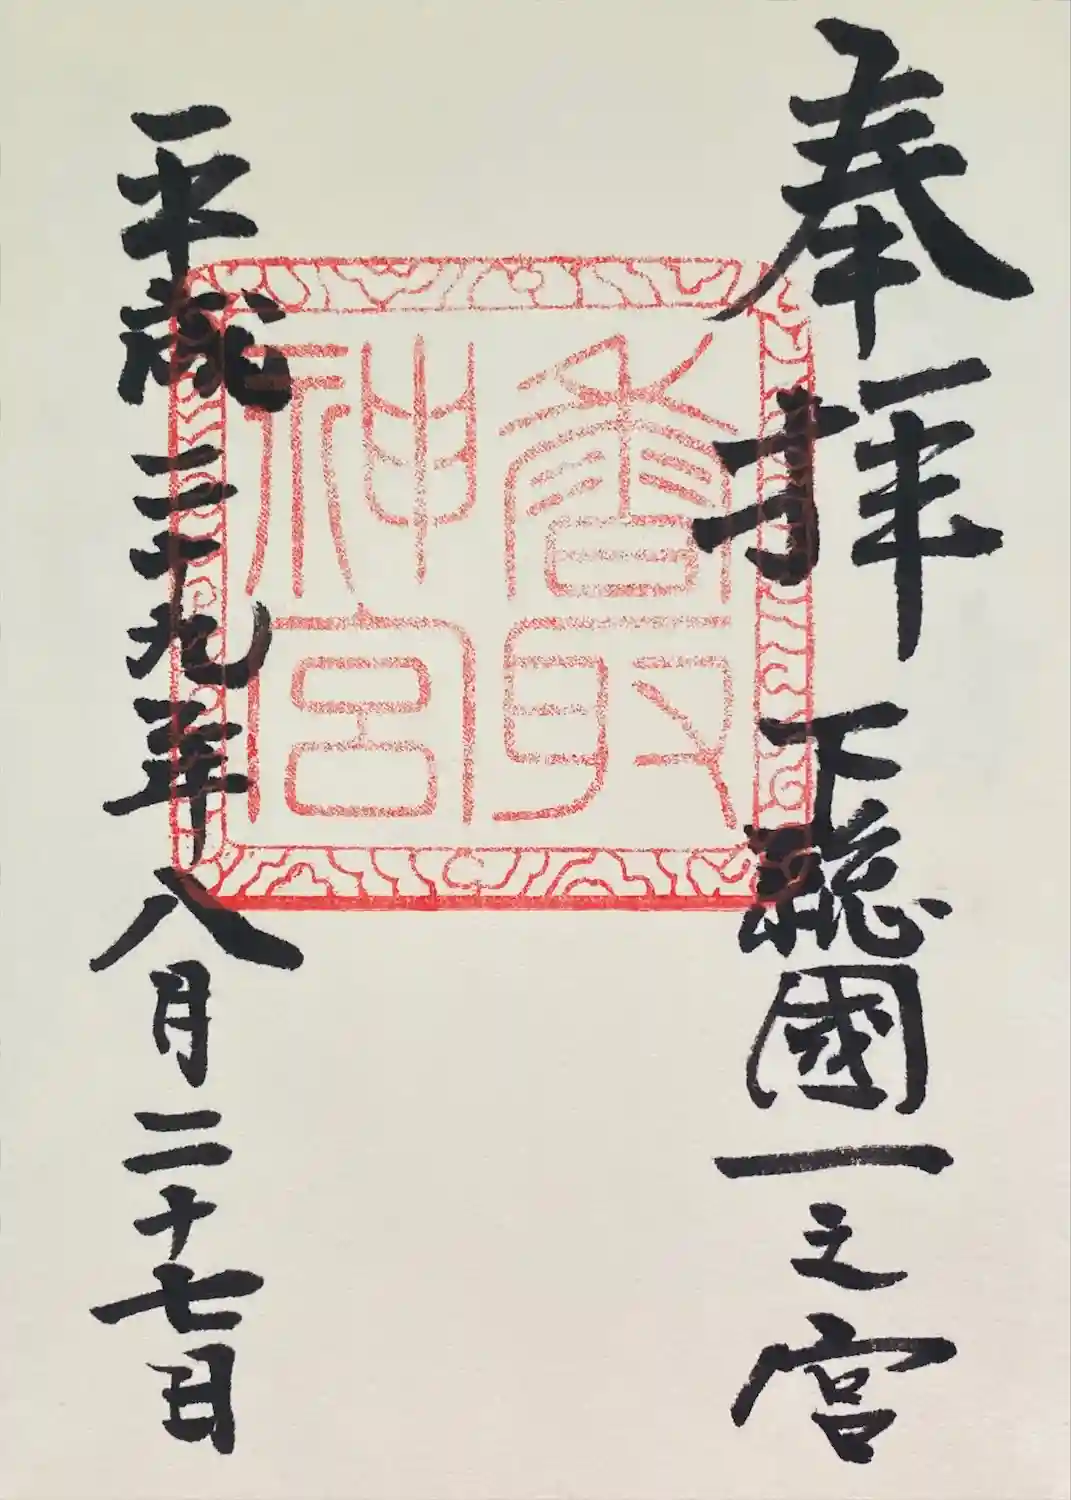 奉拝 下総國一之宮
香取
神宮
平成二十九年八月二十七日